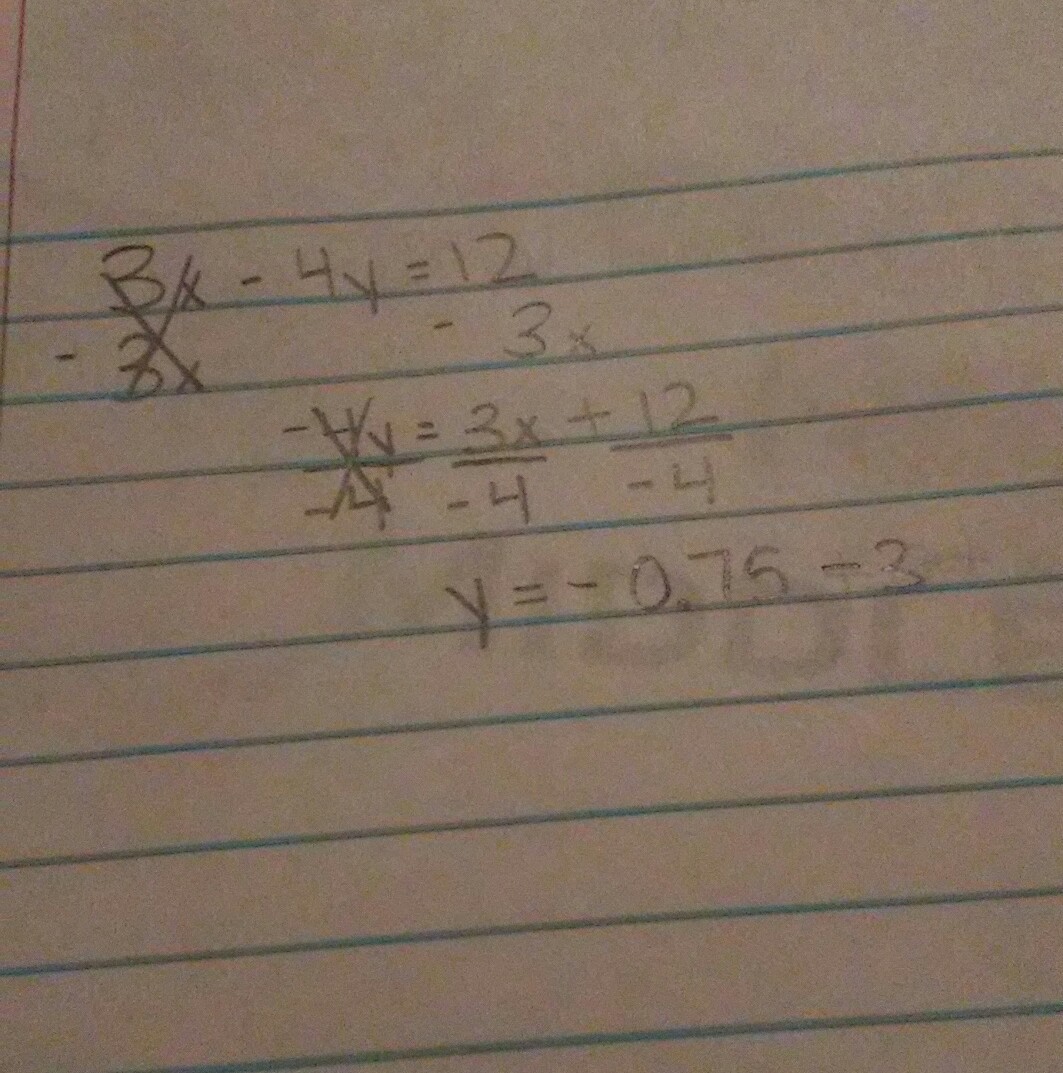 3x - 4y = 12
- 3x - 3x
-4y = 3x + 12
-4 -4 -4
y = - 0.75 - 3